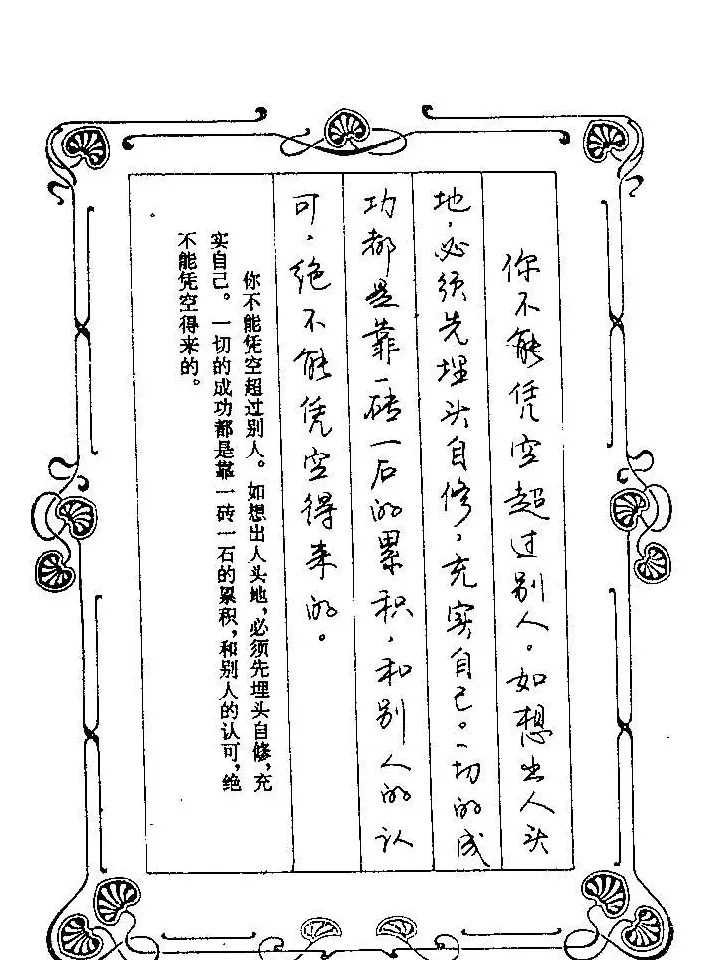 你不能凭空超过别人。如想出人头
地，必须先埋头自修，充实自己。一切的成
功都是靠一砖一石的累积，和别人的认
可，绝不能凭空得来的。
你不能凭空超过别人。如想出人头地，必须先埋头自修，充
实自己。一切的成功都是靠一砖一石的累积，和别人的认可，绝
不能凭空得来的。